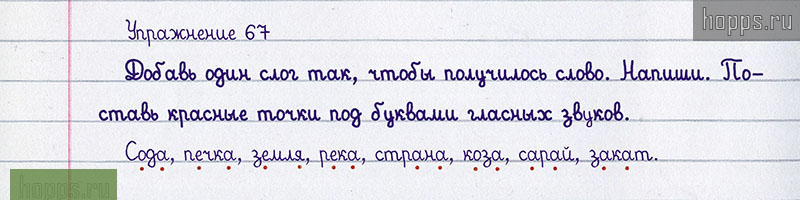 hopps.ru
Упражнение 67
Добавь один слог так, чтобы получилось слово. Напиши. По-
ставь красные точки под буквами гласных звуков.
Сода, печка, земля, река, страна, коза, сарай, закат.
hopps.ru